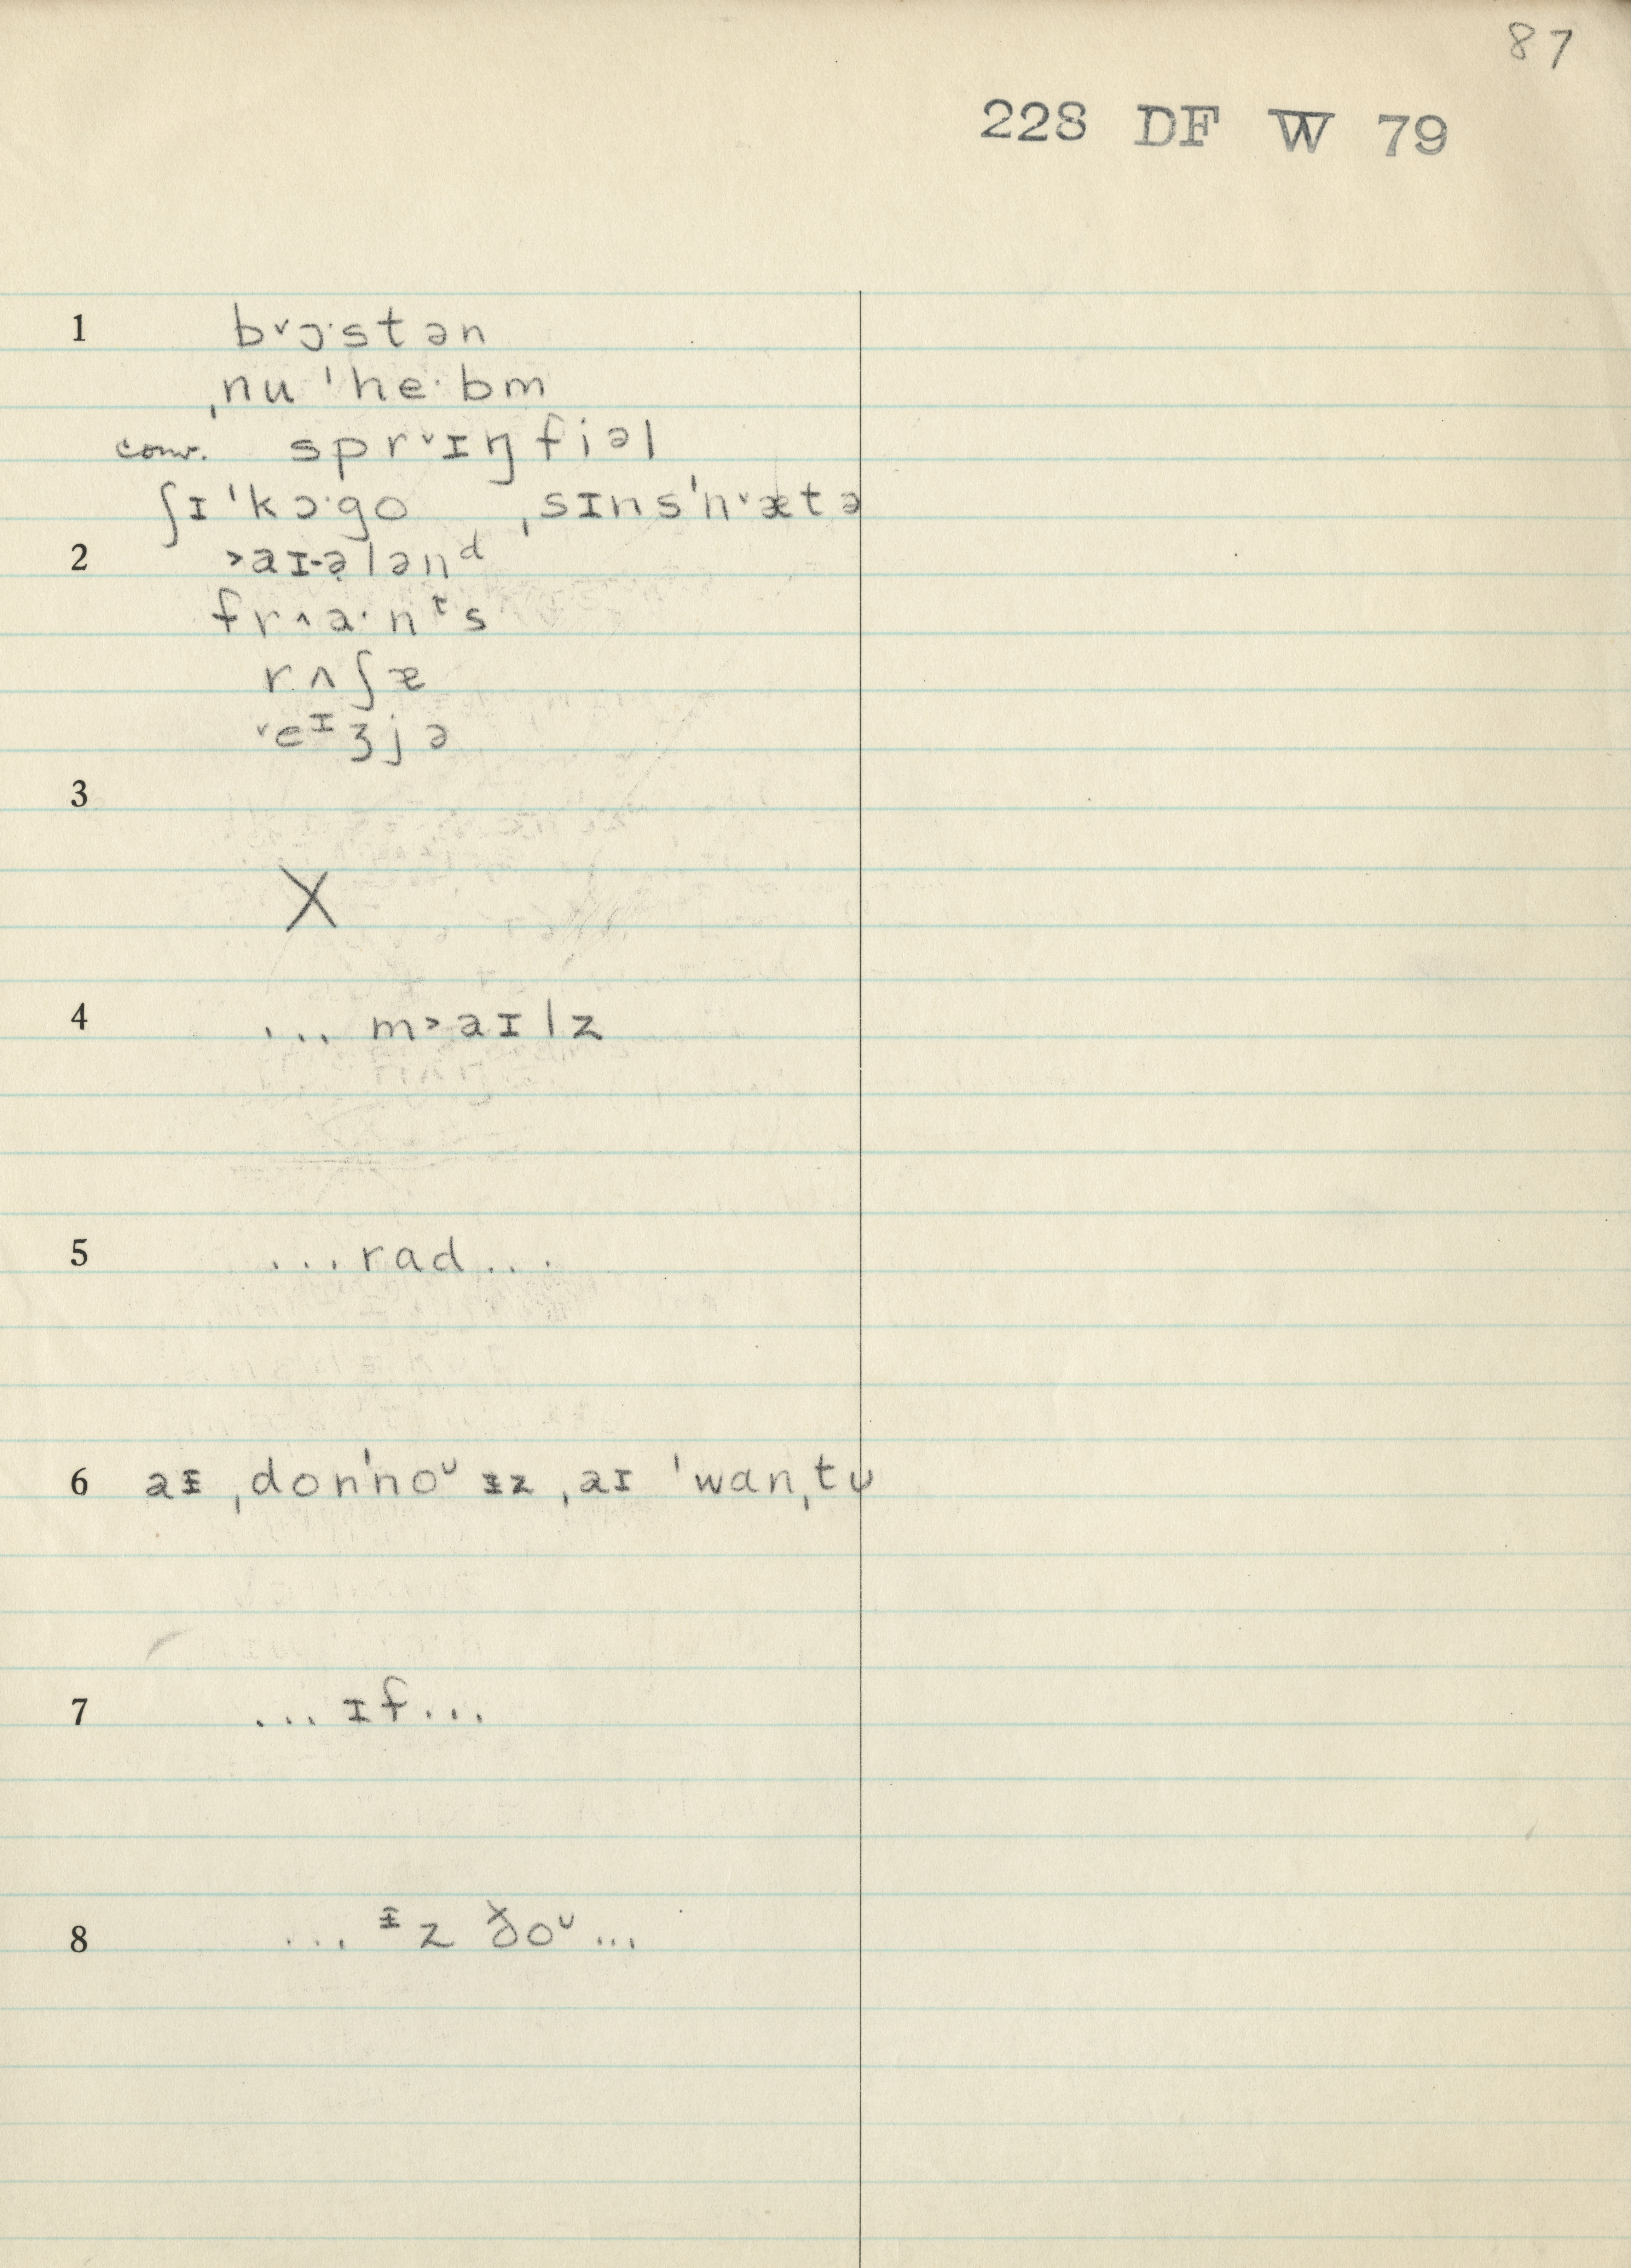 87
228 DF W 79
1 b˅ɔ·stən
ˌnu ˈhe·bm
conv. spr˅ɪŋfiəl
ʃɪˈkɔ·go ˌsɪnsˈn˅ætə
2 ˃aɪ-ə̣lənᵈ
fr˄a·nᵗs
rʌʃæ
˅eᶦʒjə
3
X
4 ... m˃aɪlz
5 ...rad...
6 aᵻ ˌdonˈnoᶷ ᵻz ˌaɪ ˈwanˌtᴜ
7 ...ɪf...
8 ... ᵻz ðoᶷ...